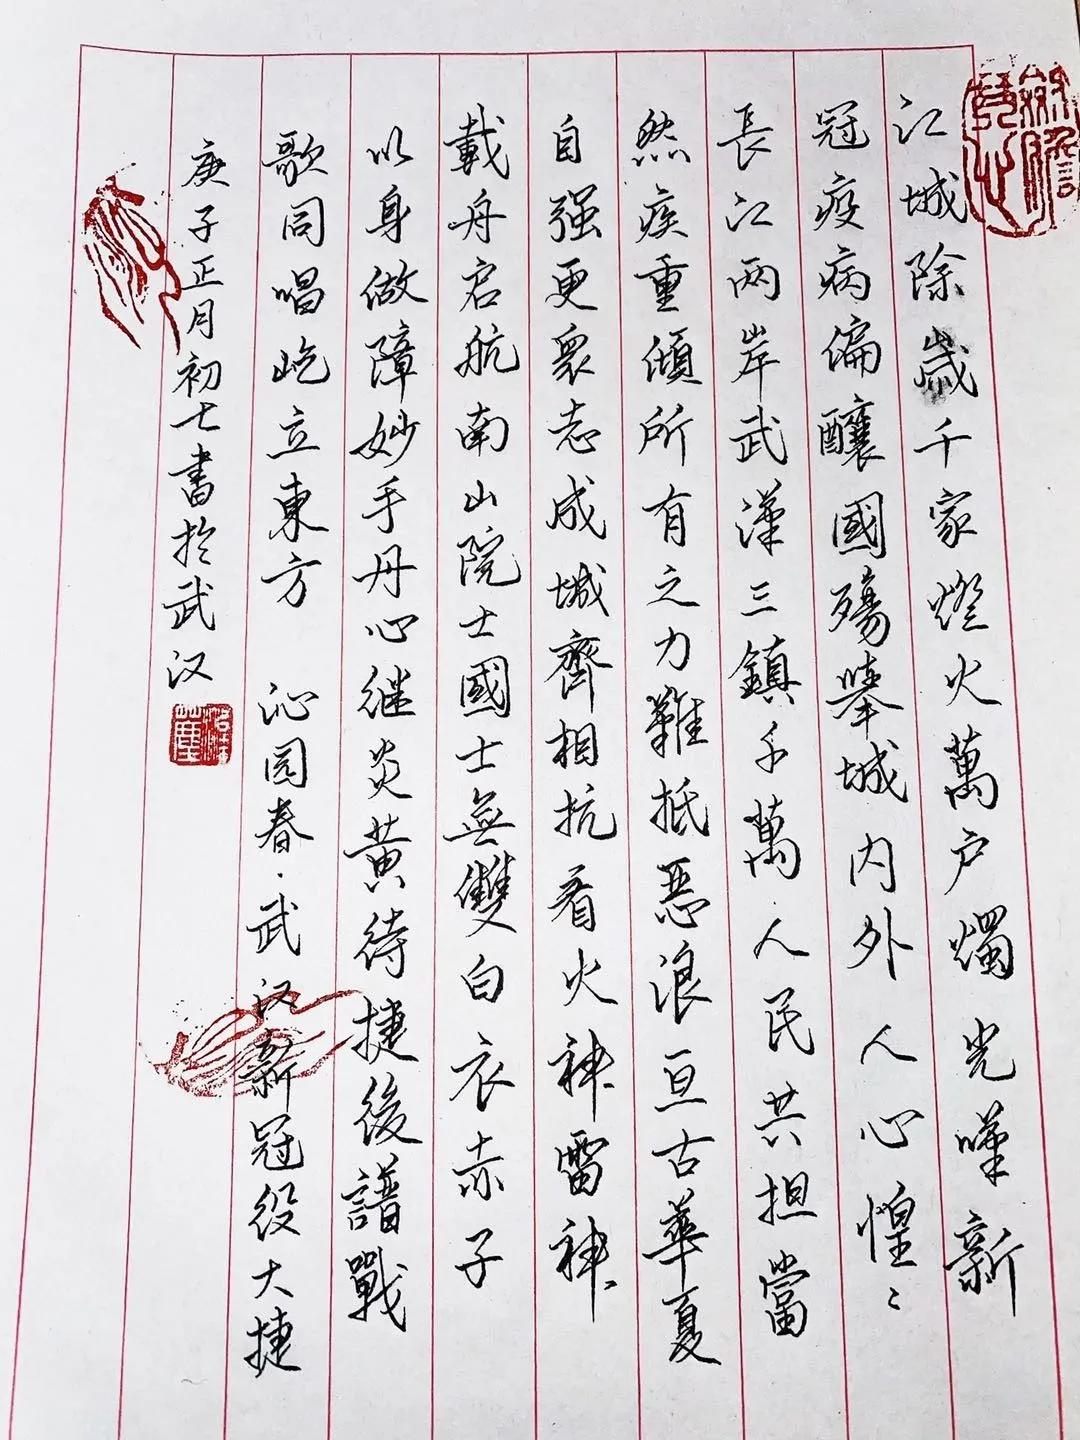 江城除歲千家燈火萬户燭光嘆新
冠疫病偏釀國殤舉城内外人心惶〻
長江两岸武漢三鎮千萬人民共担當
然疾重傾所有之力難抵惡浪亘古華夏
自强更衆志成城齊相抗看火神雷神
載舟启航南山院士國士無雙白衣赤子
以身做障妙手丹心继炎黄待捷後譜戰
歌同唱屹立東方 沁园春·武汉新冠役大捷
庚子正月初七書於武汉